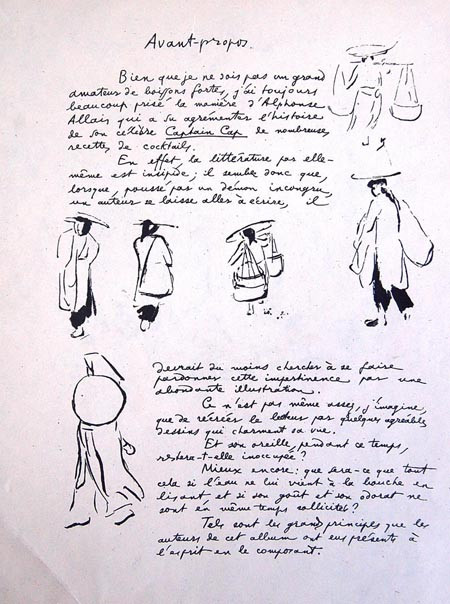 Avant-propos.
Bien que je ne sois pas un grand
amateur de boissons fortes, j'ai toujours
beaucoup prisé la manière d'Alphonse
Allais qui a su agrémenter l'histoire
de son célèbre Captain Cap de nombreuses
recettes de cocktails.
En effet la littérature par elle-
même est insipide; il semble donc que,
lorsque, poussé par un démon incongru,
un auteur se laisse aller à écrire, il
devrait du moins chercher à se faire
pardonner cette impertinence par une
abondante illustration.
Ce n'est pas même assez, j'imagine,
que de récréer le lecteur par quelques agréables
dessins qui charment sa vue.
Et son oreille, pendant ce temps,
restera-t-elle inoccupée?
Mieux encore: que sera-ce que tout
cela si l'eau ne lui vient à la bouche en
lisant et si son goût et son odorat ne
sont en même temps sollicités?
Tels sont les grands principes que les
auteurs de cet album ont eus présents à
l'esprit en le composant.